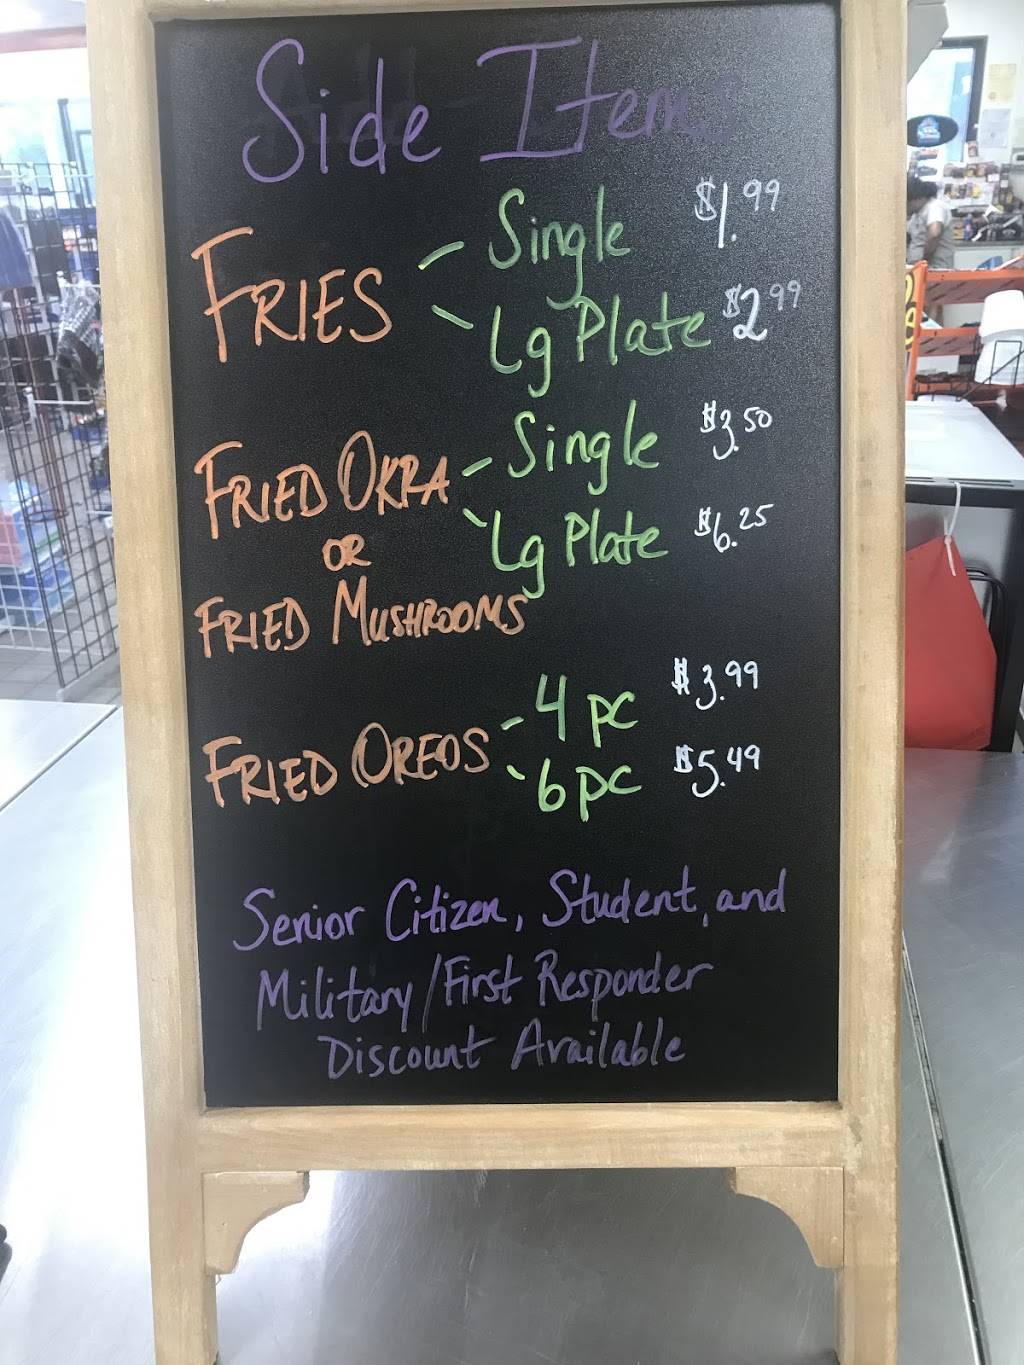 Side Items
FRIES - Single $1.99
- Lg Plate $2.99
FRIED OKRA - Single $3.50
OR - Lg Plate $6.25
FRIED MUSHROOMS
FRIED OREOS - 4 pc $3.99
- 6 pc $5.49
Senior Citizen, Student, and
Military/First Responder
Discount Available